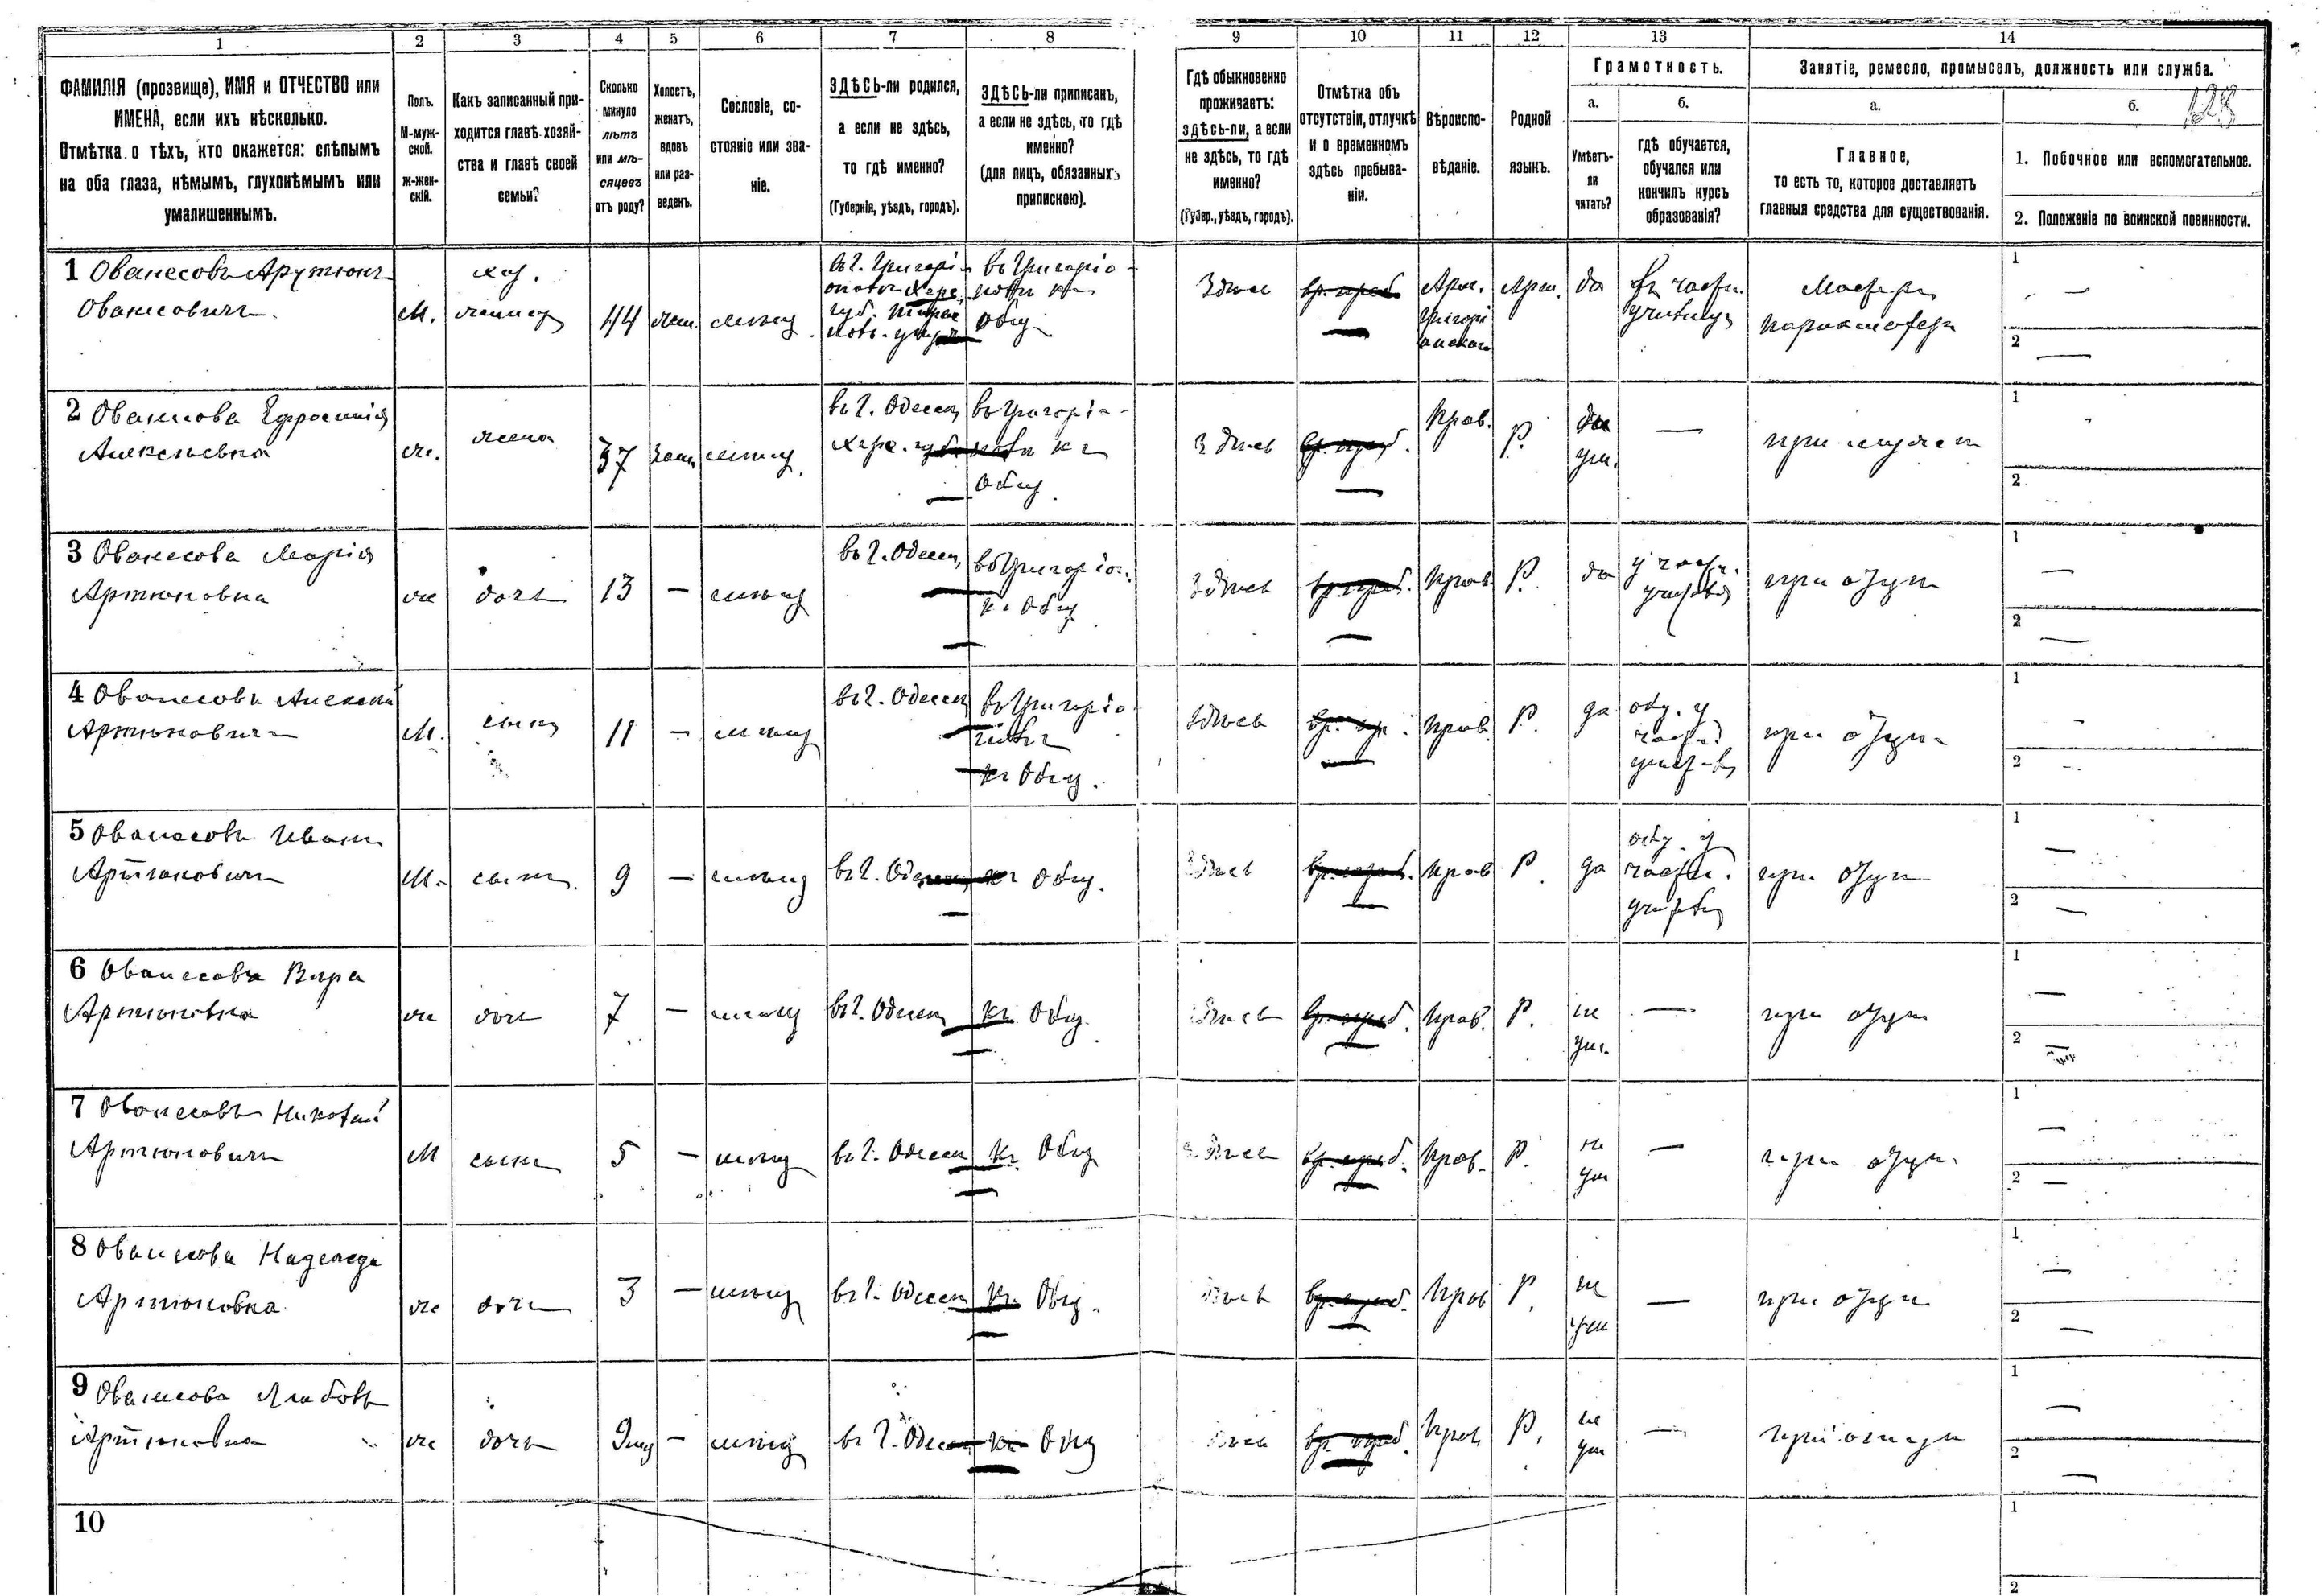 1 2 3 4 5 6 7 8 9 10 11 12 13 14
ФАМИЛІЯ (прозвище), ИМЯ и ОТЧЕСТВО или
ИМЕНА, если ихъ нѣсколько.
Отмѣтка о тѣхъ, кто окажется: слѣпымъ
на оба глаза, нѣмымъ, глухонѣмымъ или
умалишеннымъ.
Полъ.
М-муж-
ской.
ж-жен-
скій.
Какъ записанный при-
ходится главѣ хозяй-
ства и главѣ своей
семьи?
Сколько
минуло
лѣтъ
или мѣ-
сяцевъ
отъ роду?
Холостъ,
женатъ,
вдовъ
или раз-
веденъ.
Сословіе, со-
стояніе или зва-
ніе.
ЗДѢСЬ-ли родился,
а если не здѣсь,
то гдѣ именно?
(Губернія, уѣздъ, городъ).
ЗДѢСЬ-ли приписанъ,
а если не здѣсь, то гдѣ
именно?
(для лицъ, обязанныхъ
припискою).
Гдѣ обыкновенно
проживаетъ:
здѣсь-ли, а если
не здѣсь, то гдѣ
именно?
(Губер., уѣздъ, городъ).
Отмѣтка объ
отсутствіи, отлучкѣ
и о временномъ
здѣсь пребыва-
ніи.
Вѣроиспо-
вѣданіе.
Родной
языкъ.
Грамотность.
а.
Умѣетъ-
ли
читать?
б.
гдѣ обучается,
обучался или
кончилъ курсъ
образованія?
Занятіе, ремесло, промыселъ, должность или служба.
а.
Главное,
то есть то, которое доставляетъ
главныя средства для существованія.
б.
128
1. Побочное или вспомогательное.
2. Положеніе по воинской повинности.
1 Ованесовъ Арутюнъ
Ованесовичъ
М.
хоз.
44
жен.
мѣщ.
въ г. Григорі-
въ Григоріо-
общ
Здѣсь
Арм.
Григорі
Арм.
да
1
2
2 Ованесова Ефросинія
Алексѣевна
ж.
жена
37
зам.
мѣщ.
въ г. Одессѣ
Херс. губ.
въ Григоріо-
общ.
Здѣсь
вр. преб.
Прав.
Р.
ум.
при мужѣ
1
2
3 Ованесова Марія
Артюновна
же
дочь
13
мѣщ
въ г. Одессѣ
въ Григоріоп.
общ
Здѣсь
вр. преб.
Прав.
Р.
да
при отцѣ
1
2
4 Ованесовъ Алексѣй
Артюновичъ
М.
сынъ
11
мѣщ
въ г. Одессѣ
въ Григоріо
общ.
Здѣсь
вр. пр.
Прав.
Р.
да
обу. у
при отцѣ
1
2
5 Ованесовъ Иванъ
Артюновичъ
М.
сынъ
9
мѣщ
въ г. Одессѣ
общ.
Здѣсь
вр. преб.
Прав
Р.
да
обу. у
при отцѣ
1
2
6 Ованесова Вѣра
Артюновна
же
дочь
7
мѣщ
въ г. Одессѣ
общ.
Здѣсь
вр. преб.
Прав.
Р.
не
ум.
при отцѣ
1
2
7 Ованесовъ Николай
Артюновичъ
М
сынъ
5
мѣщ
въ г. Одессѣ
общ
Здѣсь
вр. преб.
Прав.
Р.
не
ум
при отцѣ
1
2
8 Ованесова Надежда
Артюновна
же
дочь
3
мѣщ
въ г. Одессѣ
общ.
Здѣсь
вр. преб.
Прав
Р.
не
ум
при отцѣ
1
2
9 Ованесова Любовь
Артюновна
же
дочь
9 мѣ
мѣщ
въ г. Одессѣ
общ
Здѣсь
вр. преб.
Прав
Р.
не
ум
при отцѣ
1
2
10
1
2